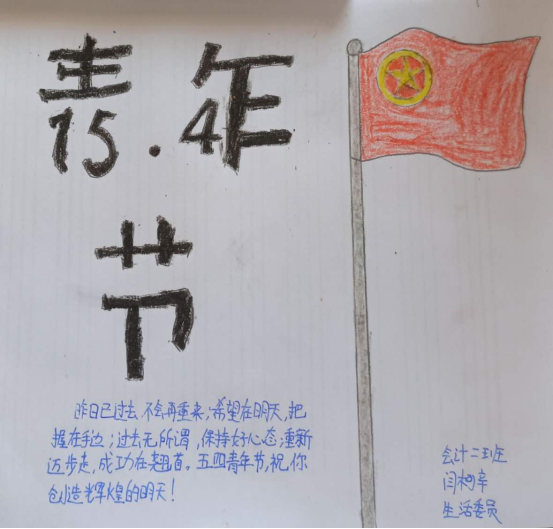 青年
5.4
节
昨日已过去,不会再重来;希望在明天,把
握在手边;过去无所谓,保持好心态;重新
迈步走,成功在翘首。五四青年节,祝你
创造辉煌的明天!
会计二班
闫柯辛
生活委员